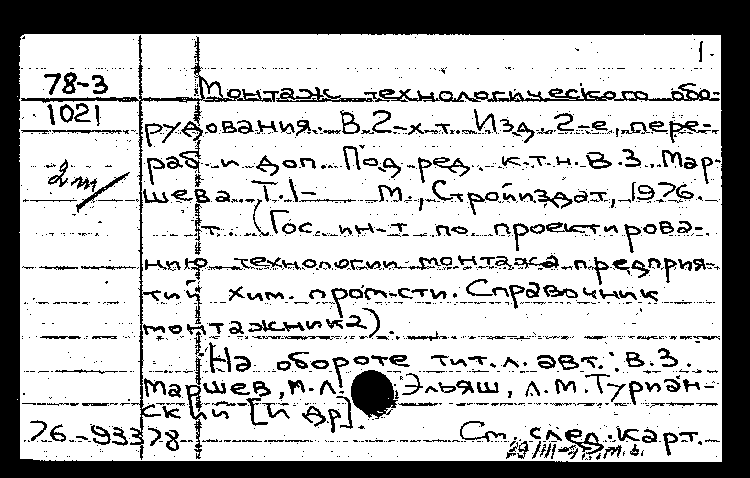 1.
78-3
1021
2 т
Монтаж технологического обо-
рудования. В 2-х т. Изд. 2-е, пере-
раб. и доп. Под ред. к.т.н. В.З. Мар-
шева. Т.1- М., Стройиздат, 1976.
т. (Гос. ин-т по проектирова-
нию технологии монтажа предприя-
тий хим. пром-сти. Справочник
монтажника).
На обороте тит. л. авт.: В.З.
Маршев, М.Л. Эльяш, Л.М. Туриан-
ский [и др].
76-93378
См. след. карт.